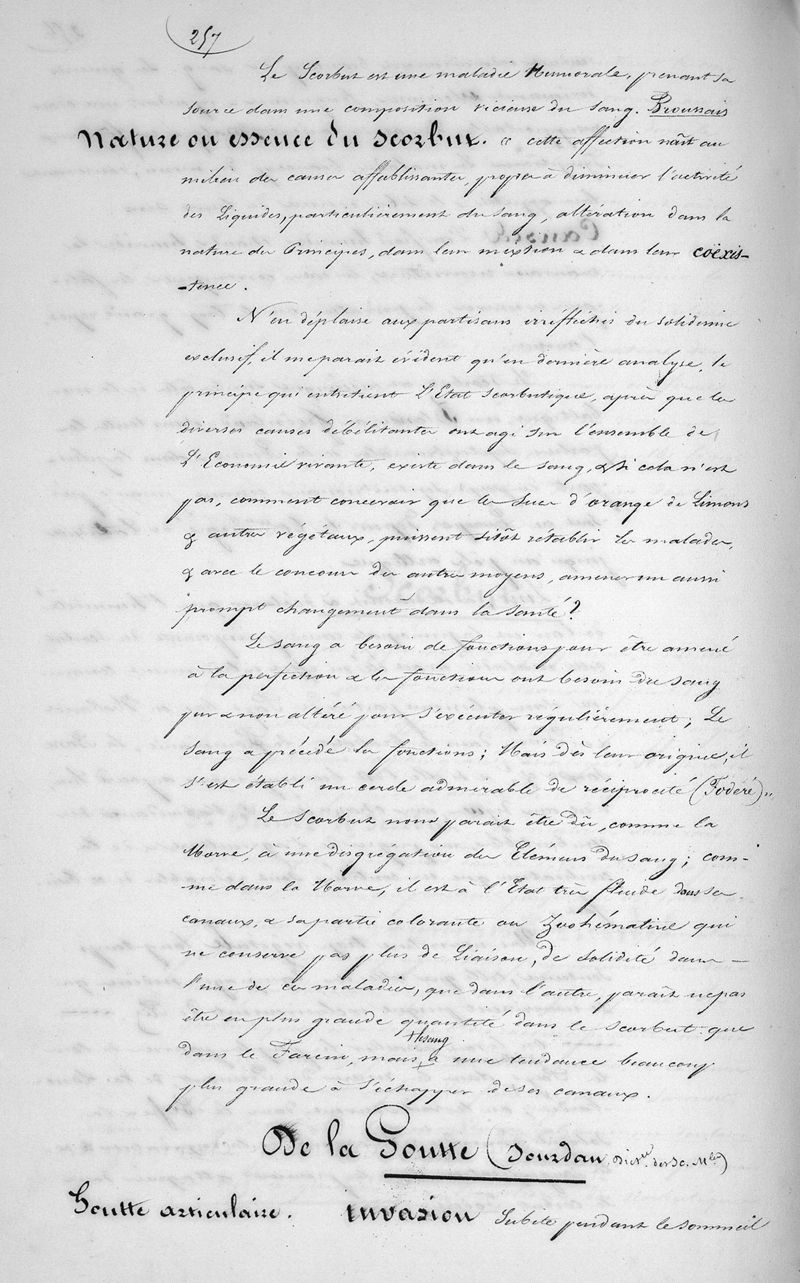 257
Le Scorbut est une maladie Humorale, prenant sa
source dans une composition vicieuse du sang. Broussais
Nature ou essence du scorbut. « cette affection naît au
milieu des causes affaiblissantes, propres à diminuer l'activité
des Liquides, particulièrement du sang, altération dans la
nature des Principes, dans leur mixtion & dans leur coëxis-
-tence.
N'en déplaise aux partisans irréfléchis du solidisme
exclusif, il me parait évident qu'en dernière analyse, le
principe qui entretient L'Etat scorbutique, après que les
diverses causes débilitantes ont agi sur l'ensemble de
L'Economie vivante, existe dans le sang, & si cela n'est
pas, comment concevoir que les sucs d'orange de Limons
& autres végétaux, puissent sitôt rétablir les malades,
& avec le concours des autres moyens, amener un aussi
prompt changement dans la santé?
Le sang a besoin de fonctions pour être amené
à la perfection & les fonctions ont besoin du sang
pur & non altéré pour s'exécuter régulièrement; Le
sang a précédé les fonctions; Mais dès leur origine, il
s'est établi un cercle admirable de réciprocité (Fodéré) »
Le scorbut nous parait être dû, comme la
Morve, à une disgrégation des Elémens du sang; com-
me dans la Morve, il est à l'Etat très fluide dans ses
canaux, & sa partie colorante ou Zoohématine qui
ne conserve pas plus de Liaison, de solidité dans
l'une de ces maladies, que dans l'autre, parait ne pas
être en plus grande quantité dans le scorbut que
le sang
dans le Farcin, mais a une tendance beaucoup
plus grande à s'échapper de ses canaux.
De la Goutte (Jourdan, Dict.re des Sc. M.les)
Goutte articulaire. invasion subite pendant le sommeil